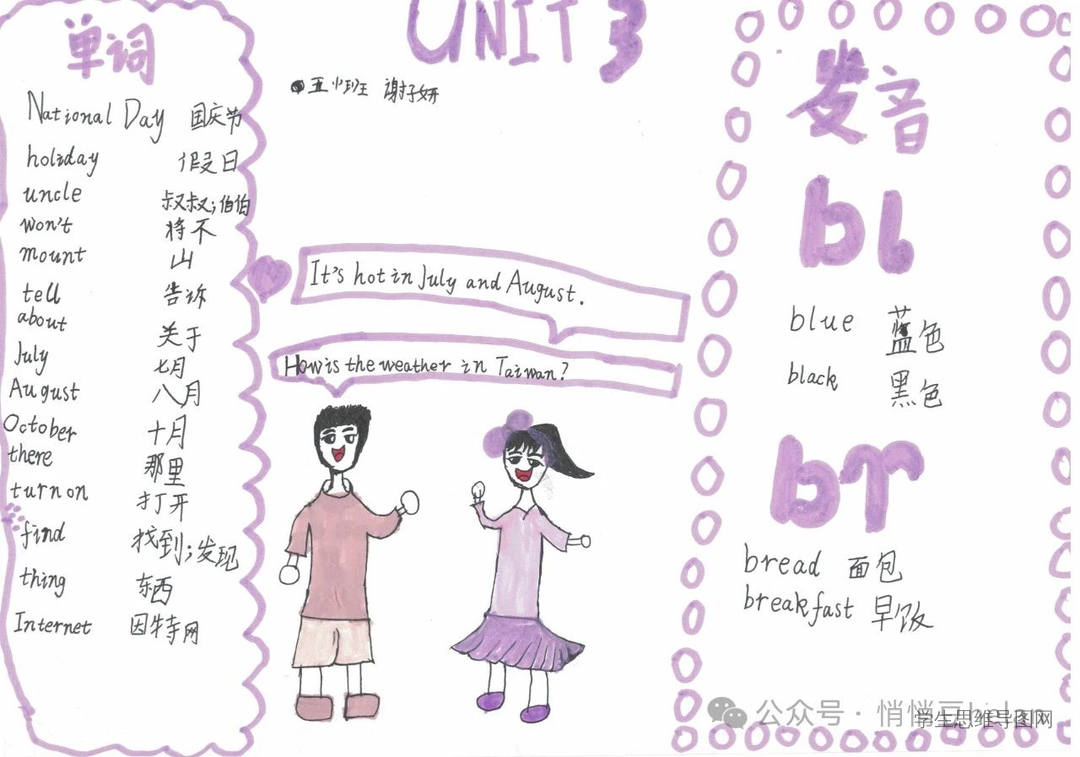 单词
National Day 国庆节
holiday 假日
uncle 叔叔;伯伯
won't 将不
mount 山
tell 告诉
about 关于
July 七月
August 八月
October 十月
there 那里
turn on 打开
find 找到;发现
thing 东西
Internet 因特网
UNIT 3
谢子妍
It's hot in July and August.
How is the weather in Taiwan?
发音
bl
blue 蓝色
black 黑色
br
bread 面包
breakfast 早饭
公众号· 悄悄豆
学生思维导图网